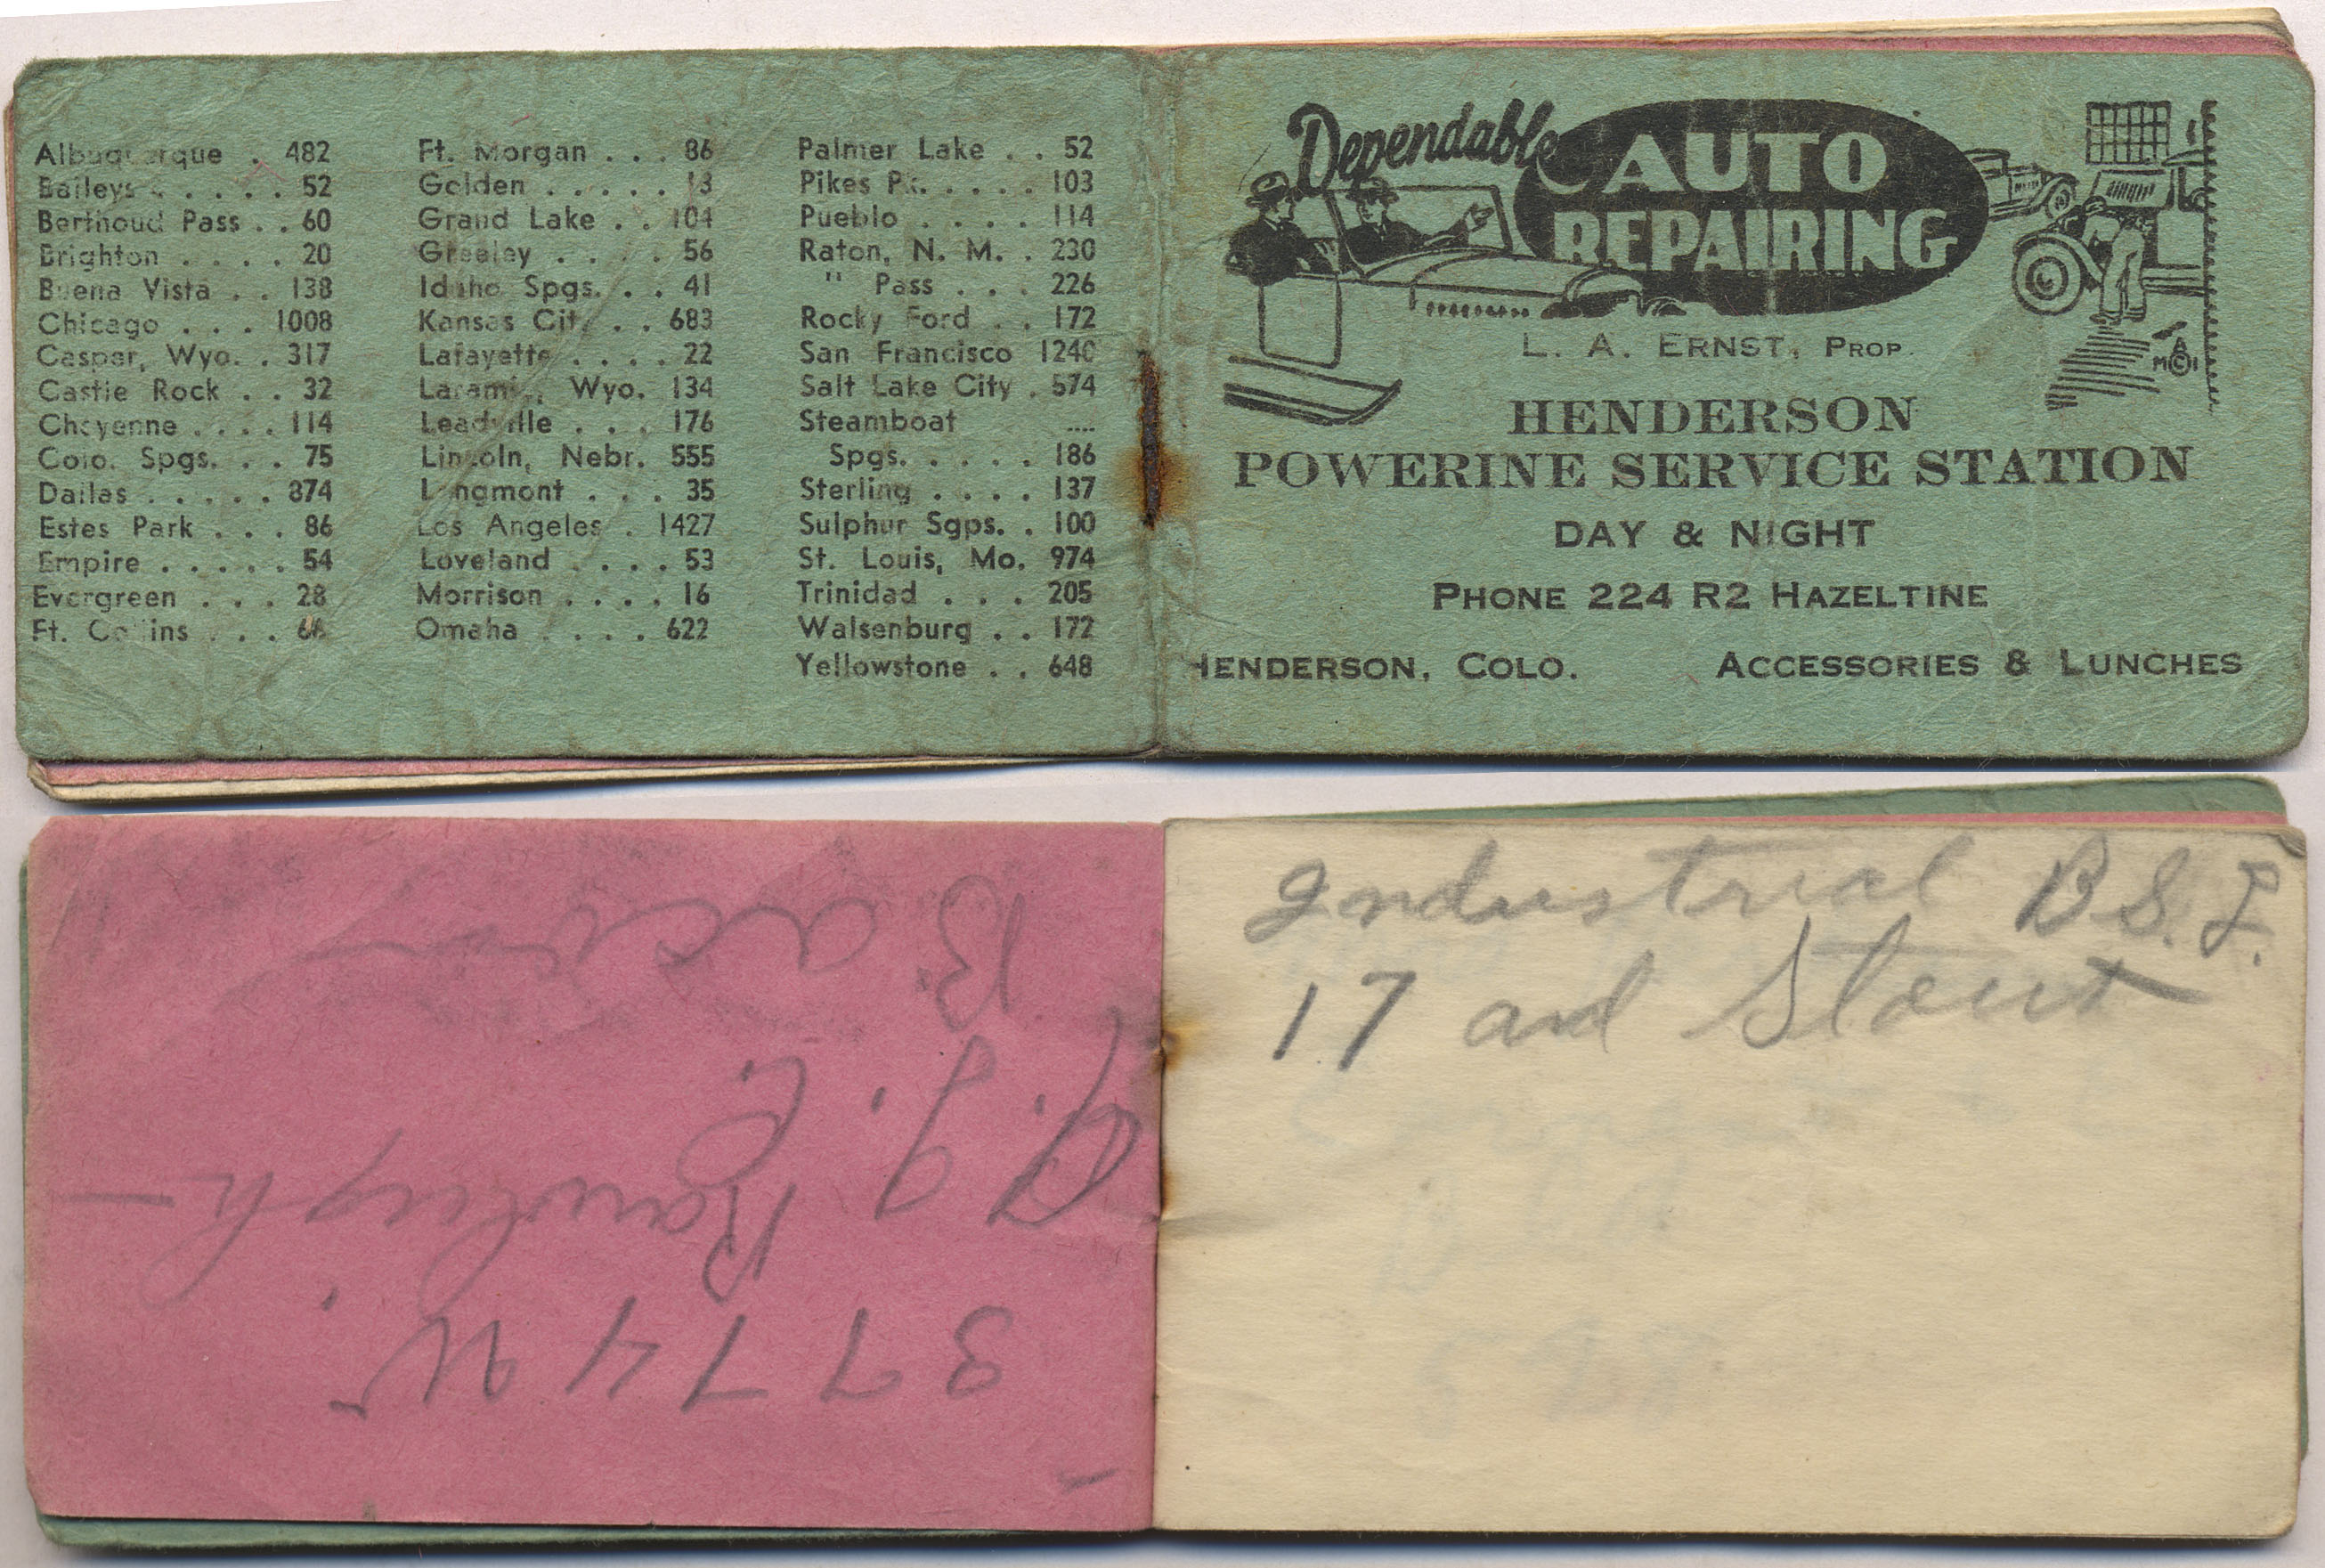 Albuquerque . 482
Baileys . . . . . 52
Berthoud Pass . . 60
Brighton . . . . 20
Buena Vista . . 138
Chicago . . . 1008
Casper, Wyo. . 317
Castle Rock . . 32
Cheyenne . . . . 114
Colo. Spgs. . . 75
Dallas . . . . . 874
Estes Park . . . 86
Empire . . . . . 54
Evergreen . . . 28
Ft. Collins . . . 66
Ft. Morgan . . . 86
Golden . . . . . 13
Grand Lake . . 104
Greeley . . . . 56
Idaho Spgs. . . 41
Kansas City . . 683
Lafayette . . . . 22
Laramie, Wyo. 134
Leadville . . . 176
Lincoln, Nebr. 555
Longmont . . . 35
Los Angeles . 1427
Loveland . . . . 53
Morrison . . . . 16
Omaha . . . . 622
Palmer Lake . . 52
Pikes Pk. . . . . 103
Pueblo . . . . 114
Raton, N. M. . 230
" Pass . . . 226
Rocky Ford . . 172
San Francisco 1240
Salt Lake City . 574
Steamboat ....
Spgs. . . . . 186
Sterling . . . . 137
Sulphur Sgps. . 100
St. Louis, Mo. 974
Trinidad . . . 205
Walsenburg . . 172
Yellowstone . . 648
Dependable AUTO
REPAIRING
L. A. ERNST, PROP.
HENDERSON
POWERINE SERVICE STATION
DAY & NIGHT
PHONE 224 R2 HAZELTINE
HENDERSON, COLO. ACCESSORIES & LUNCHES
3774W
Rawleigh
Industrial B.S.
17 and Stout